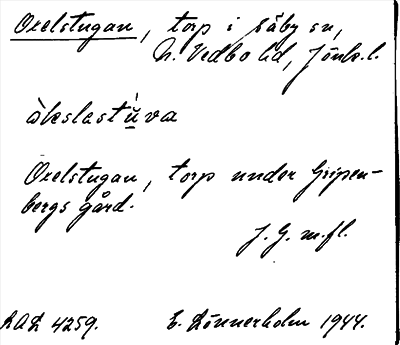 Oxelstugan, torp i Säby sn,
N. Vedbo hd, Jönk. l.
òkslastŭ̀va
Oxelstugan, torp under Gripen-
bergs gård.
J. G. m. fl.
LAL 4259. E. Lönnerholm 1944.